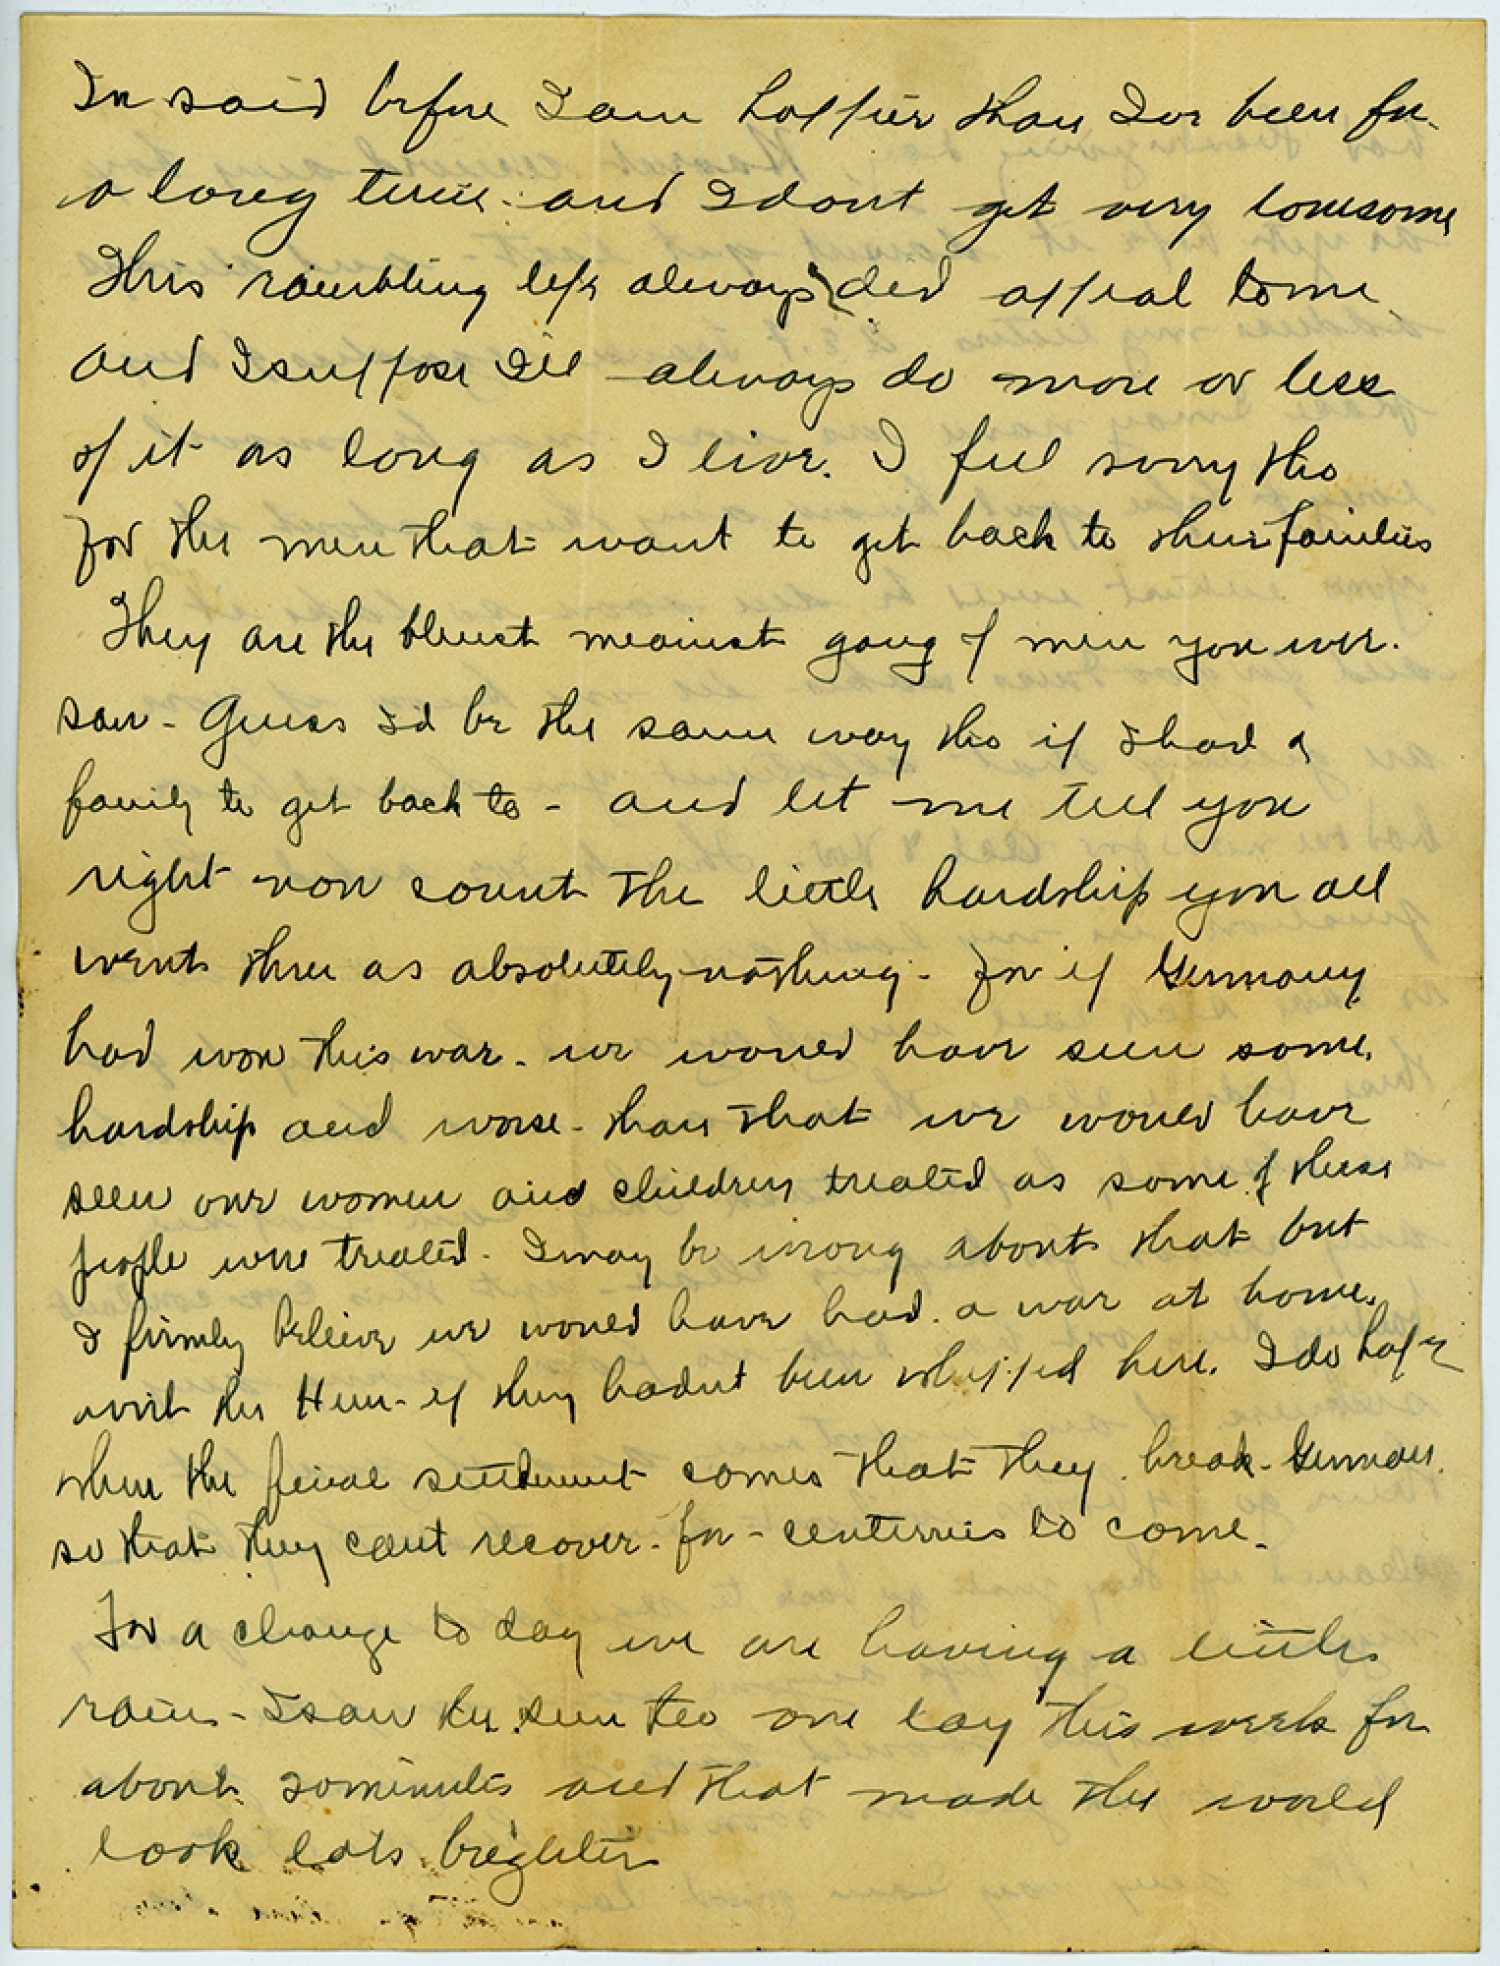 I've said before I am happier than I've been for
a long time - and I dont get very lonesome
This rambling life always did appeal to me
and I suppose I'll always do more or less
of it as long as I live. I feel sorry tho
for the men that want to get back to their families
They are the bluest meanest gang of men you ever
saw - Guess I'd be the same way tho if I had a
family to get back to - and let me tell you
right now count the little hardship you all
went thru as absolutely nothing - for if Germany
had won this war - we would have seen some
hardship and worse - than that we would have
seen our women and children treated as some of these
people were treated - I may be wrong about that but
I firmly believe we would have had a war at home
with the Hun - if they hadnt been whipped here. I do hope
when the final settlement comes that they break - Germany
so that they cant recover - for - centurries to come -
For a change to day we are having a little
rain - I saw the sun too one day this week for
about 20 minutes and that made the world
look lots brighter